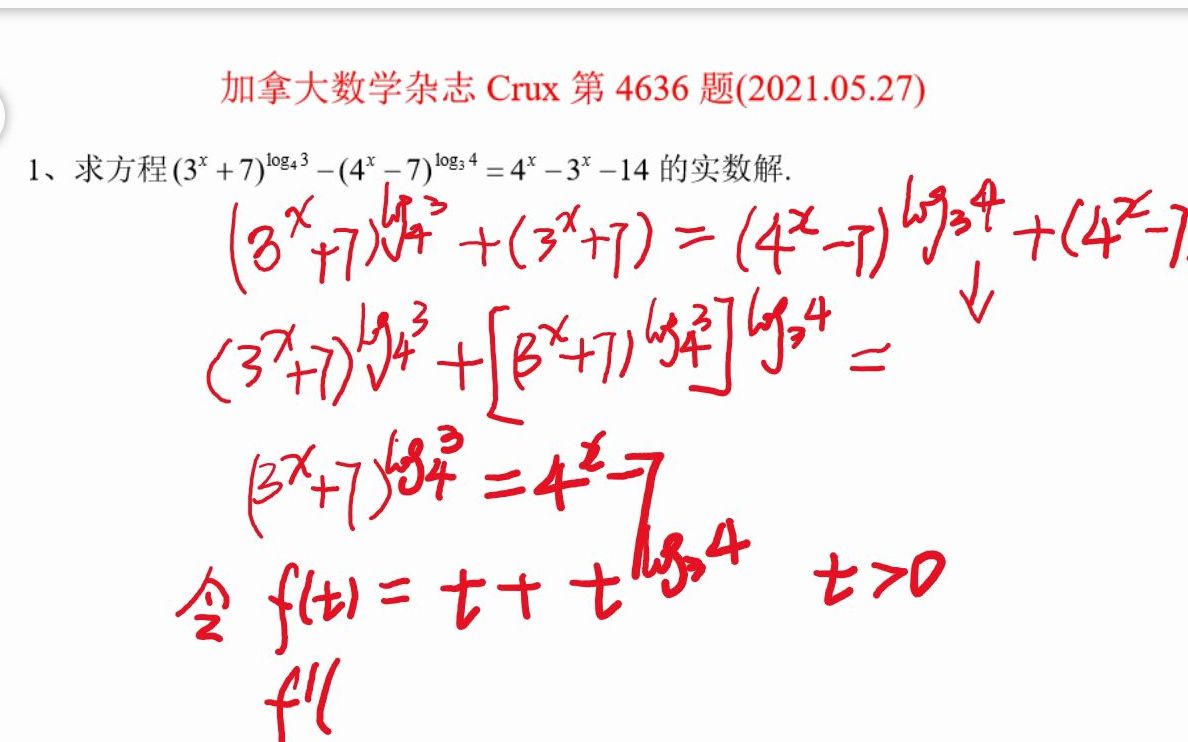 加拿大数学杂志 Crux 第 4636 题(2021.05.27)
1、求方程 (3^x + 7)^{log_4 3} − (4^x − 7)^{log_3 4} = 4^x − 3^x − 14 的实数解.
(3^x+7)^{log_4 3} + (3^x+7) = (4^x−7)^{log_3 4} + (4^x−7
(3^x+7)^{log_4 3} + [(3^x+7)^{log_4 3}]^{log_3 4} = ↓
(3^x+7)^{log_4 3} = 4^x−7
令 f(t) = t + t^{log_3 4} t>0
f'(